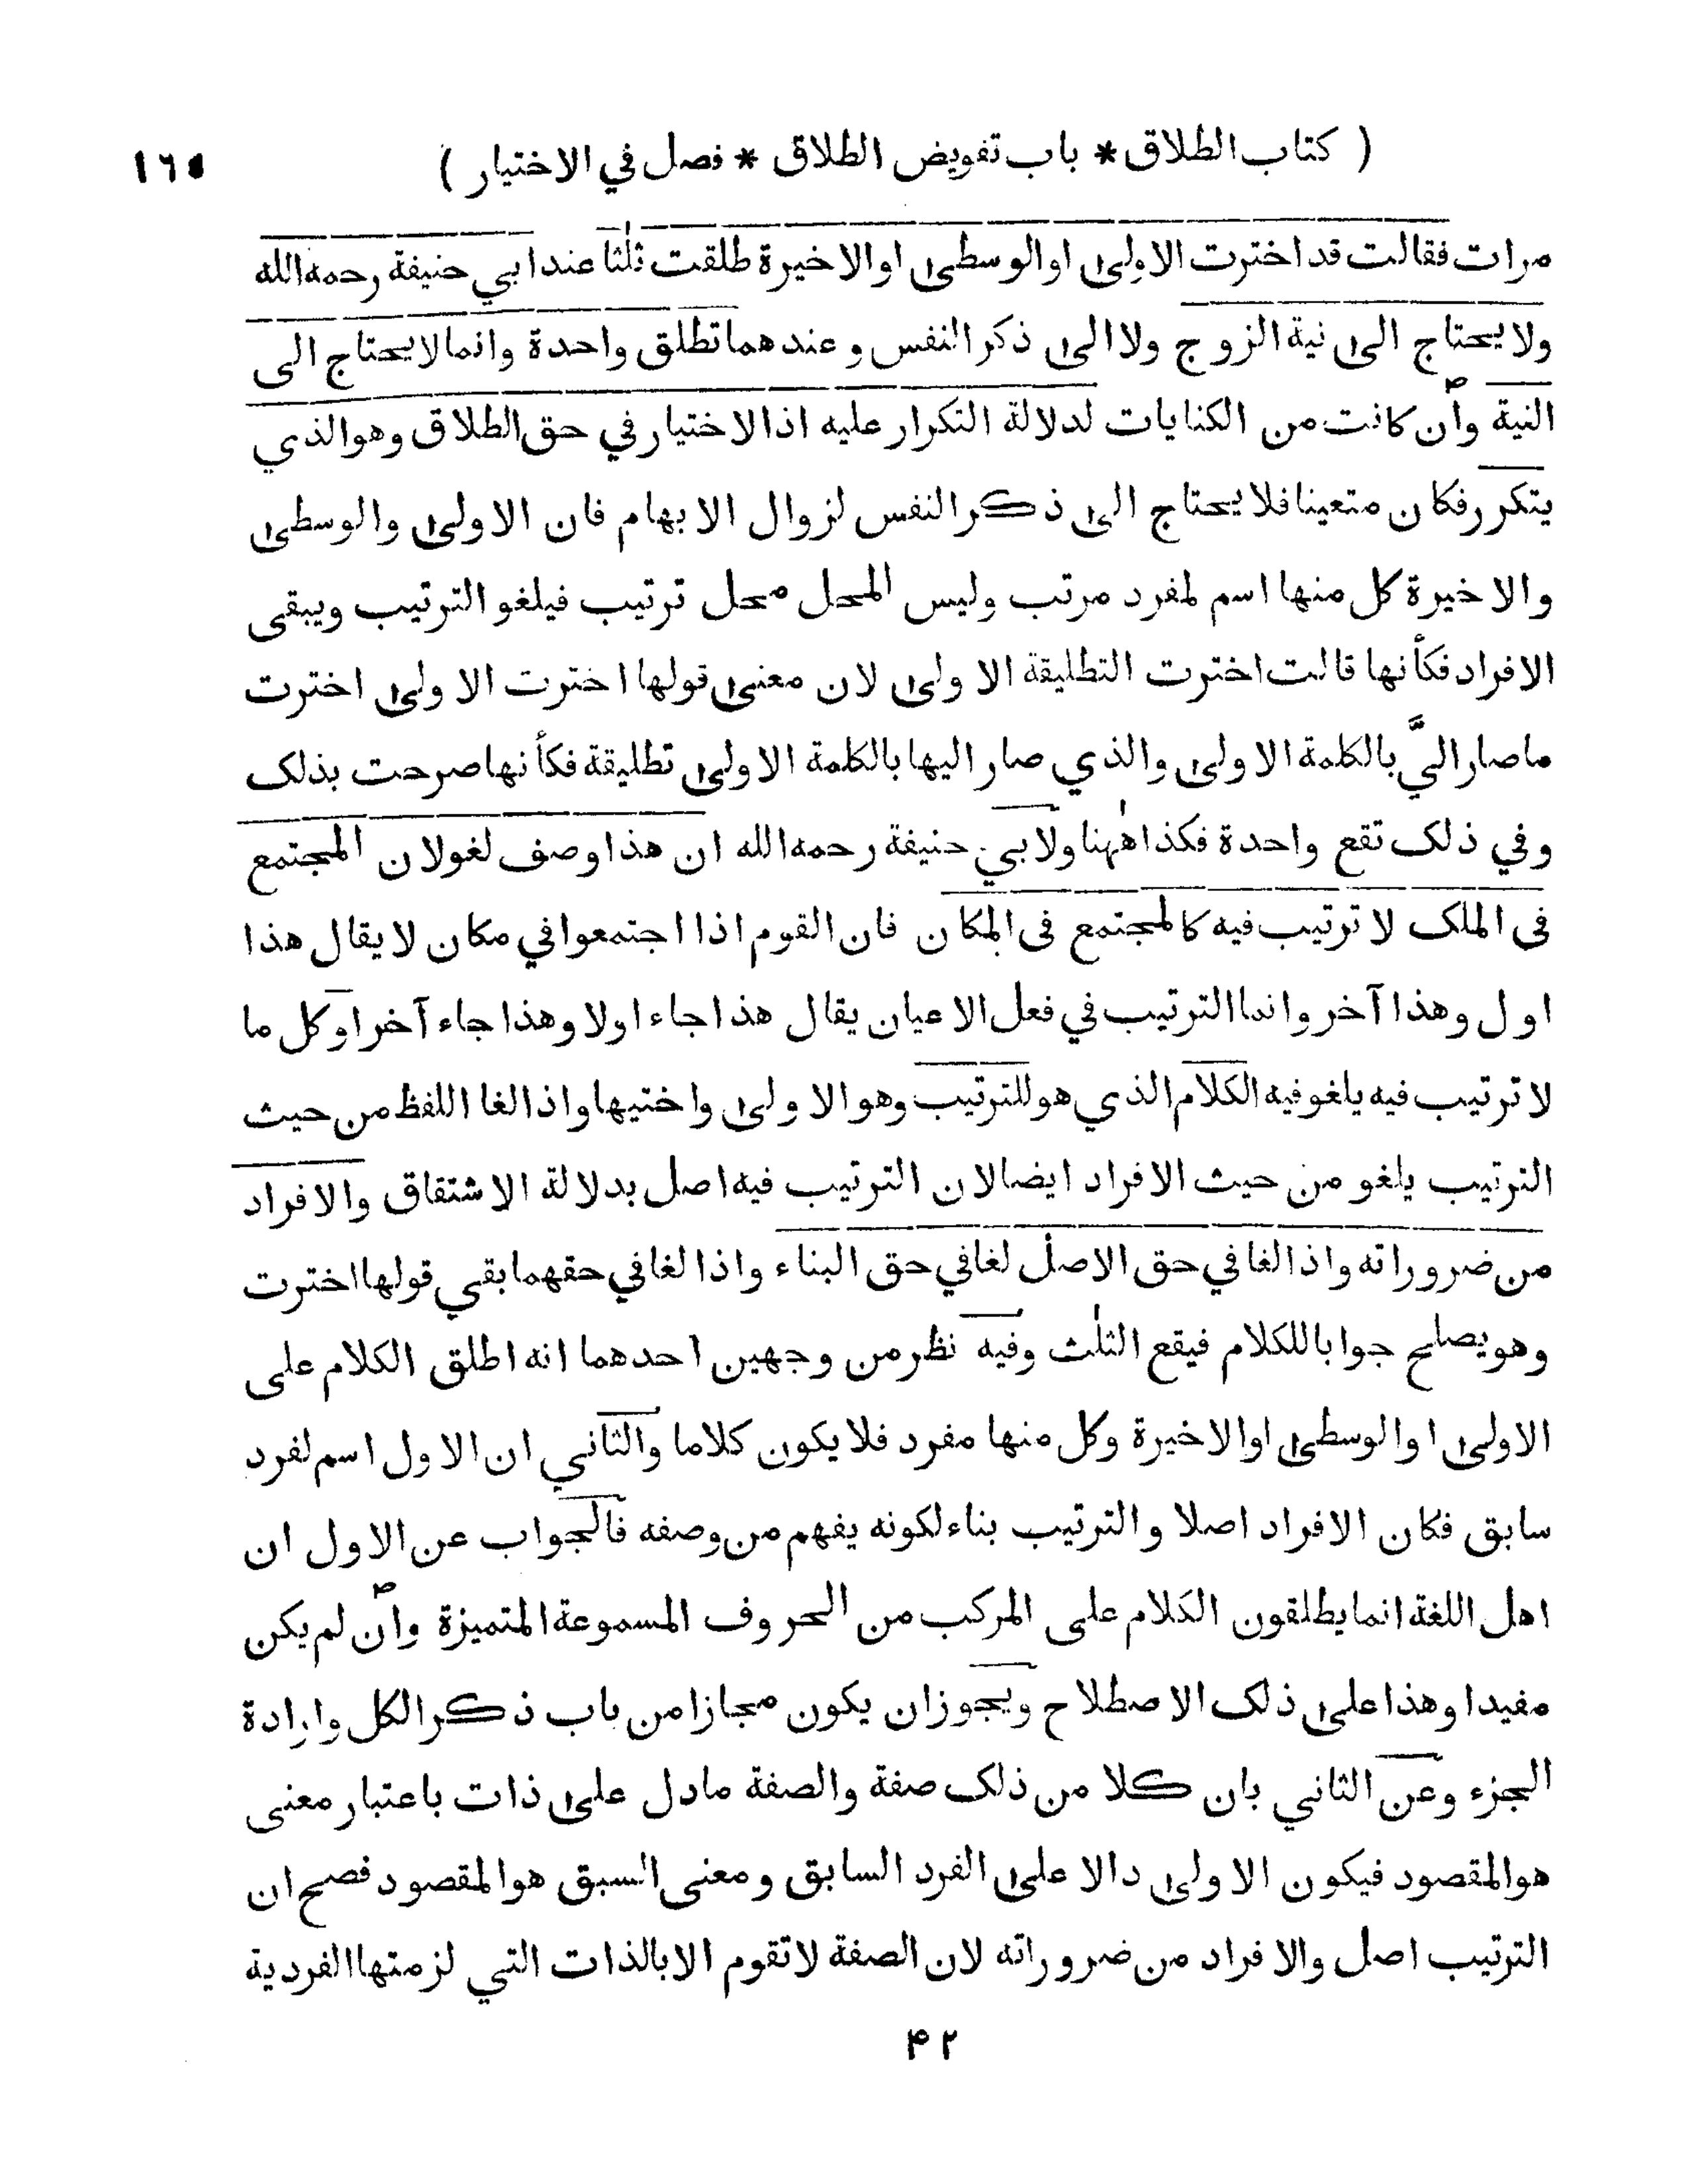 ( كتاب الطلاق * باب تفويض الطلاق * فصل في الاختيار )
مرات فقالت قد اخترت الاولى او الوسطى او الاخيرة طلقت ثلٰثا عند ابي حنيفة رحمه الله
ولا يحتاج الى نية الزوج ولا الى ذكر النفس و عندهما تطلق واحدة وانما لا يحتاج الى
النية وان كانت من الكنايات لدلالة التكرار عليه اذ الاختيار في حق الطلاق وهو الذي
يتكرر فكان متعينا فلا يحتاج الى ذكر النفس لزوال الابهام فان الاولى والوسطى
والاخيرة كل منها اسم لمفرد مرتب وليس المحل محل ترتيب فيلغو الترتيب ويبقى
الافراد فكأنها قالت اخترت التطليقة الاولى لان معنى قولها اخترت الاولى اخترت
ما صار اليَّ بالكلمة الاولى والذي صار اليها بالكلمة الاولى تطليقة فكأنها صرحت بذلك
وفي ذلك تقع واحدة فكذا هٰهنا ولابي حنيفة رحمه الله ان هذا وصف لغو لان المجتمع
في الملك لا ترتيب فيه كالمجتمع في المكان فان القوم اذا اجتمعوا في مكان لا يقال هذا
اول وهذا آخر وانما الترتيب في فعل الاعيان يقال هذا جاء اولا وهذا جاء آخرا وكل ما
لا ترتيب فيه يلغو فيه الكلام الذي هو للترتيب وهو الاولى واختيها واذا لغا اللفظ من حيث
الترتيب يلغو من حيث الافراد ايضا لان الترتيب فيه اصل بدلالة الاشتقاق والافراد
من ضروراته واذا لغا في حق الاصل لغا في حق البناء واذا لغا في حقهما بقي قولها اخترت
وهو يصلح جوابا للكلام فيقع الثلٰث وفيه نظر من وجهين احدهما انه اطلق الكلام على
الاولى او الوسطى او الاخيرة وكل منها مفرد فلا يكون كلاما والثاني ان الاول اسم لفرد
سابق فكان الافراد اصلا والترتيب بناء لكونه يفهم من وصفه فالجواب عن الاول ان
اهل اللغة انما يطلقون الكلام على المركب من الحروف المسموعة المتميزة وان لم يكن
مفيدا وهذا على ذلك الاصطلاح ويجوز ان يكون مجازا من باب ذكر الكل وارادة
الجزء وعن الثاني بان كلا من ذلك صفة والصفة ما دل على ذات باعتبار معنى
هو المقصود فيكون الاولى دالا على الفرد السابق ومعنى السبق هو المقصود فصح ان
الترتيب اصل والافراد من ضروراته لان الصفة لا تقوم الا بالذات التي لزمتها الفردية
۴۲